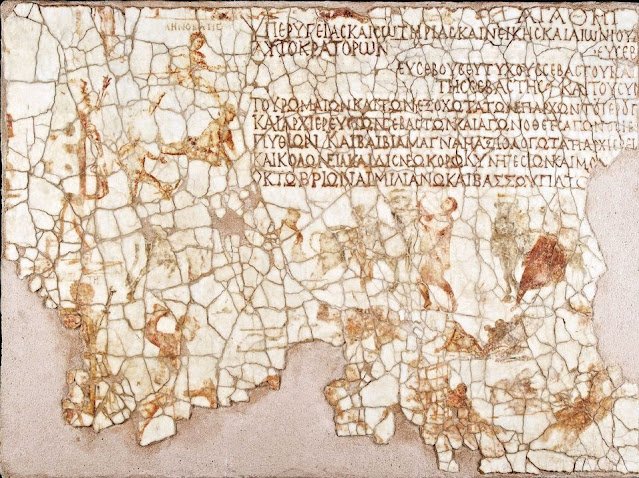 ΛΗΝΟΒΑΤΙΣ
ΑΓΑΘΗΙ
ΥΠΕΡΥΓΕΙΑΣΚΑΙΣΩΤΗΡΙΑΣΚΑΙΝΕΙΚΗΣΚΑΙΑΙΩΝΙΟΥ
ΑΥΤΟΚΡΑΤΟΡΩΝ
ΕΥΣΕΒΟΥΣΕΥΤΥΧΟΥΣΣΕΒΑΣΤΟΥ
ΤΗΣΣΕΒΑΣΤΗΣΚΑΙΤΟΥΣΥ
ΤΟΥΡΩΜΑΙΩΝΚΑΙΤΩΝΕΞΟΧΩΤΑΤΩΝΕΠΑΡΧΩΝΤΟΥΙΕΡΟΥ
ΚΑΙΑΡΧΙΕΡΕΥΣΤΩΝΣΕΒΑΣΤΩΝΚΑΙΑΓΩΝΟΘΕΤΗΣ
ΠΥΘΙΩΝΚΑΙΒΑΙΒΙΑΜΑΓΝΑΗΑΞΙΟΛΟΓΩΤΑΤΗΑΡΧΙΕΡΕΙΑ
ΚΑΙΚΟΛΩΝΕΙΑΚΑΙΔΙΣΝΕΩΚΟΡΩΚΥΝΗΓΕΣΙΩΝΚΑΙΜΟ
ΟΚΤΩΒΡΙΩΝΑΙΜΙΛΙΑΝΩΚΑΙΒΑΣΣΩΥΠΑΤΟ